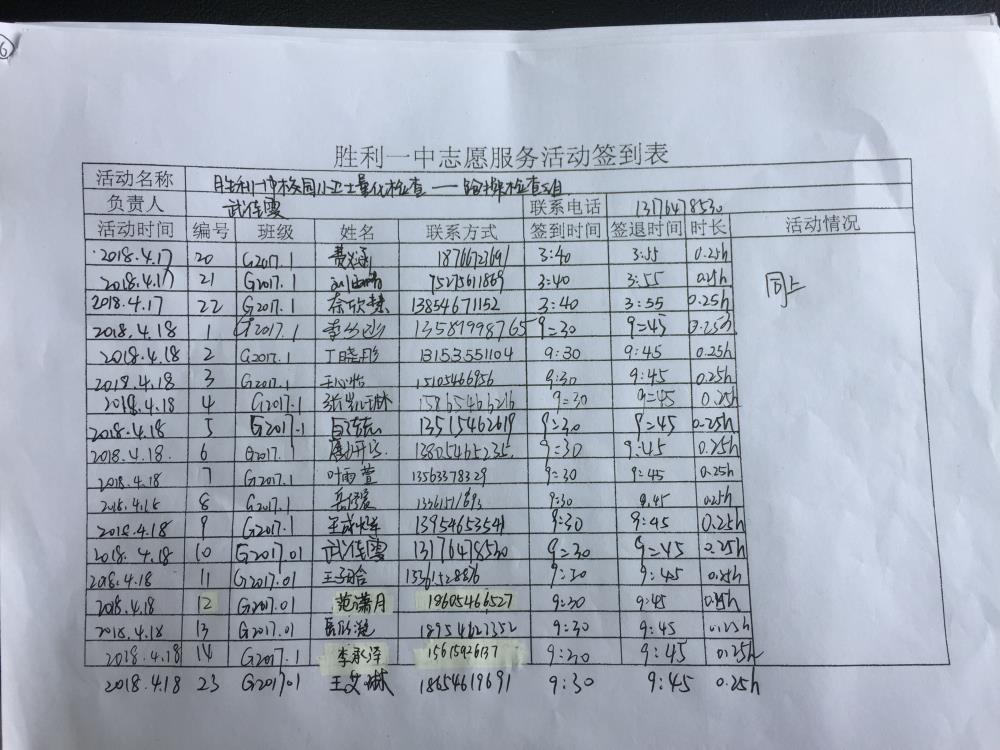 6
胜利一中志愿服务活动签到表
活动名称 胜利一中校园小卫士量化检查——检查组
负责人 武佳雯 联系电话 13176478530
活动时间 编号 班级 姓名 联系方式 签到时间 签退时间 时长 活动情况
2018.4.17 20 G2017.1 3:40 3:55 0.25h
2018.4.17 21 G2017.1 3:40 3:55 0.25h 同上
2018.4.17 22 G2017.1 13854671152 3:40 3:55 0.25h
2018.4.18 1 G2017.1 13581998765 9:30 9:45 0.25h
2018.4.18 2 G2017.1 丁晓彤 13153551104 9:30 9:45 0.25h
2018.4.18 3 G2017.1 王心怡 15105466956 9:30 9:45 0.25h
2018.4.18 4 G2017.1 张凯琳 15865466216 9:30 9:45 0.25h
2018.4.18 5 G2017.1 13515462619 9:30 9:45 0.25h
2018.4.18. 6 G2017.1 13805465235. 9:30 9:45 0.25h
2018.4.18 7 G2017.1 叶雨萱 13563378329 9:30 9:45 0.25h
2018.4.18 8 G2017.1 9:30 9:45 0.25h
2018.4.18 9 G2017.1 13954653541 9:30 9:45 0.25h
2018.4.18 10 G2017.01 武佳雯 13176478530 9:30 9:45 0.25h
2018.4.18 11 G2017.01 13361528876 9:30 9:45 0.25h
2018.4.18 12 G2017.01 范潇月 18605466527 9:30 9:45 0.25h
2018.4.18 13 G2017.01 18954627352 9:30 9:45 0.25h
2018.4.18 14 G2017.1 李承泽 15615926137 9:30 9:45 0.25h
2018.4.18 23 G2017.01 王艾琳 18654619691 9:30 9:45 0.25h